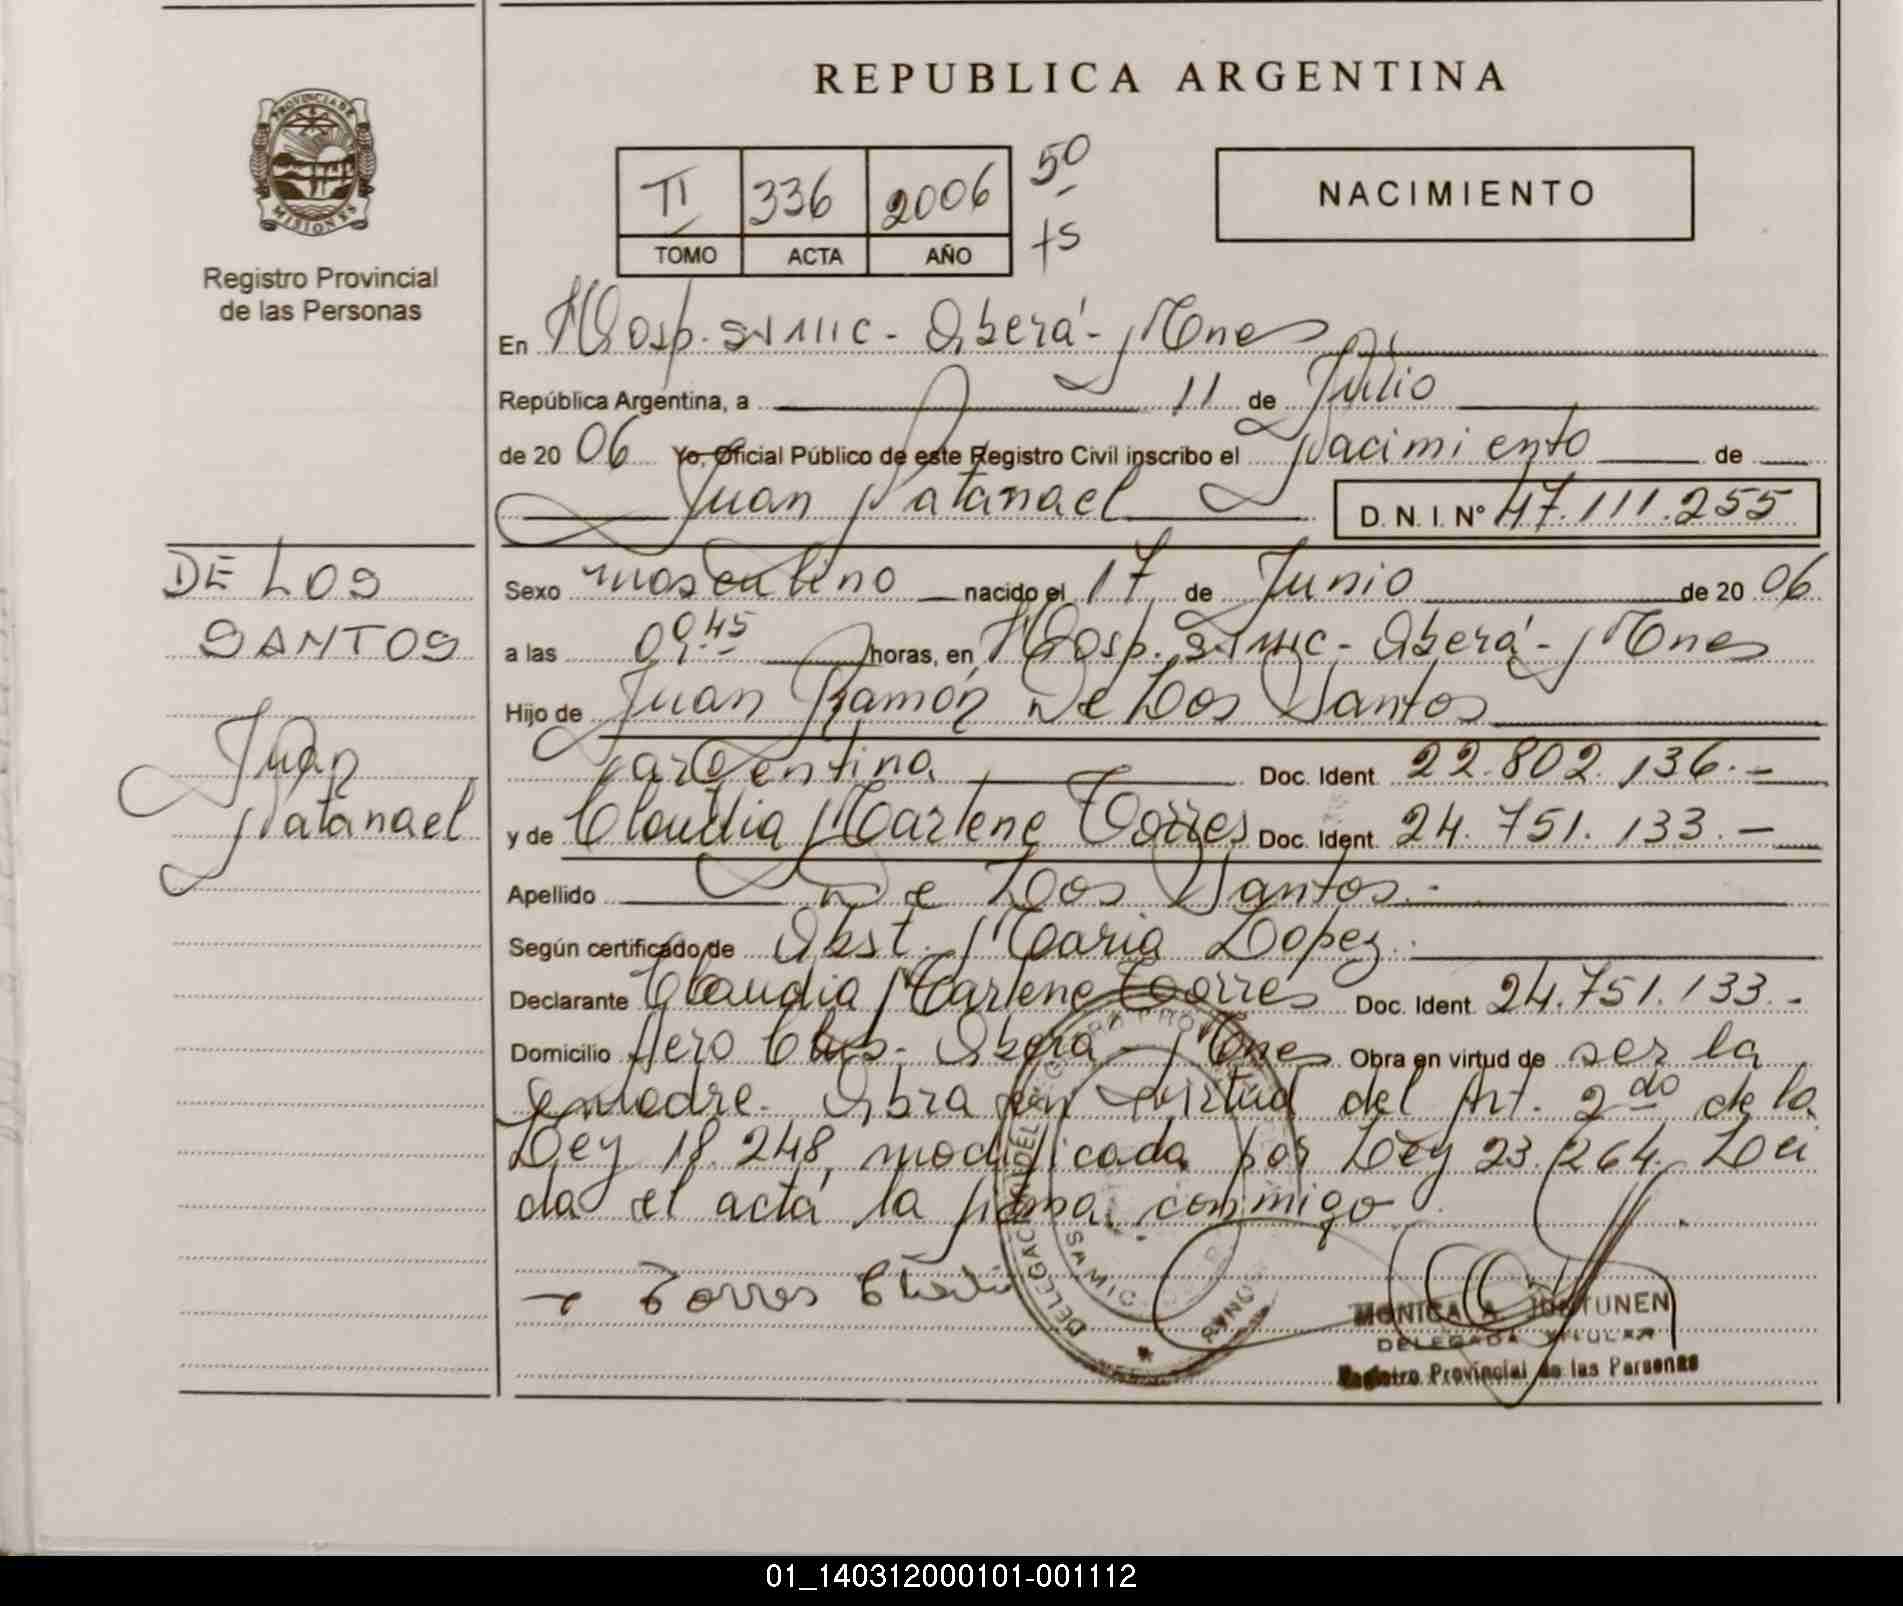 REPUBLICA ARGENTINA
PROVINCIA DE
MISIONES
Registro Provincial
de las Personas
II 336 2006 50
TOMO ACTA AÑO fs
NACIMIENTO
En Hosp. SAMIC - Oberá - Mnes
República Argentina, a 11 de Julio
de 20 06 Yo, Oficial Público de este Registro Civil inscribo el Nacimiento de
Juan Natanael D. N. I. Nº 47.111.255
DE LOS
SANTOS
Juan
Natanael
Sexo masculino nacido el 17 de Junio de 20 06
a las 09.45 horas, en Hosp. SAMIC - Oberá - Mnes
Hijo de Juan Ramón De Los Santos
argentina Doc. Ident. 22.802.136.-
y de Claudia Marlene Torres Doc. Ident. 24.751.133.-
Apellido De Los Santos.-
Según certificado de Obst. Maria Lopez.
Declarante Claudia Marlene Torres Doc. Ident. 24.751.133.-
Domicilio Aero Club - Oberá - Mnes Obra en virtud de ser la
madre. Obra en virtud del Art. 2do de la
Ley 18.248, modificada por Ley 23.264. Lei
da el acta, la firma conmigo.
Torres
DELEGACION
SAMIC
MONICA A. JUNTUNEN
DELEGADA TITULAR
Registro Provincial de las Personas
01_140312000101-001112